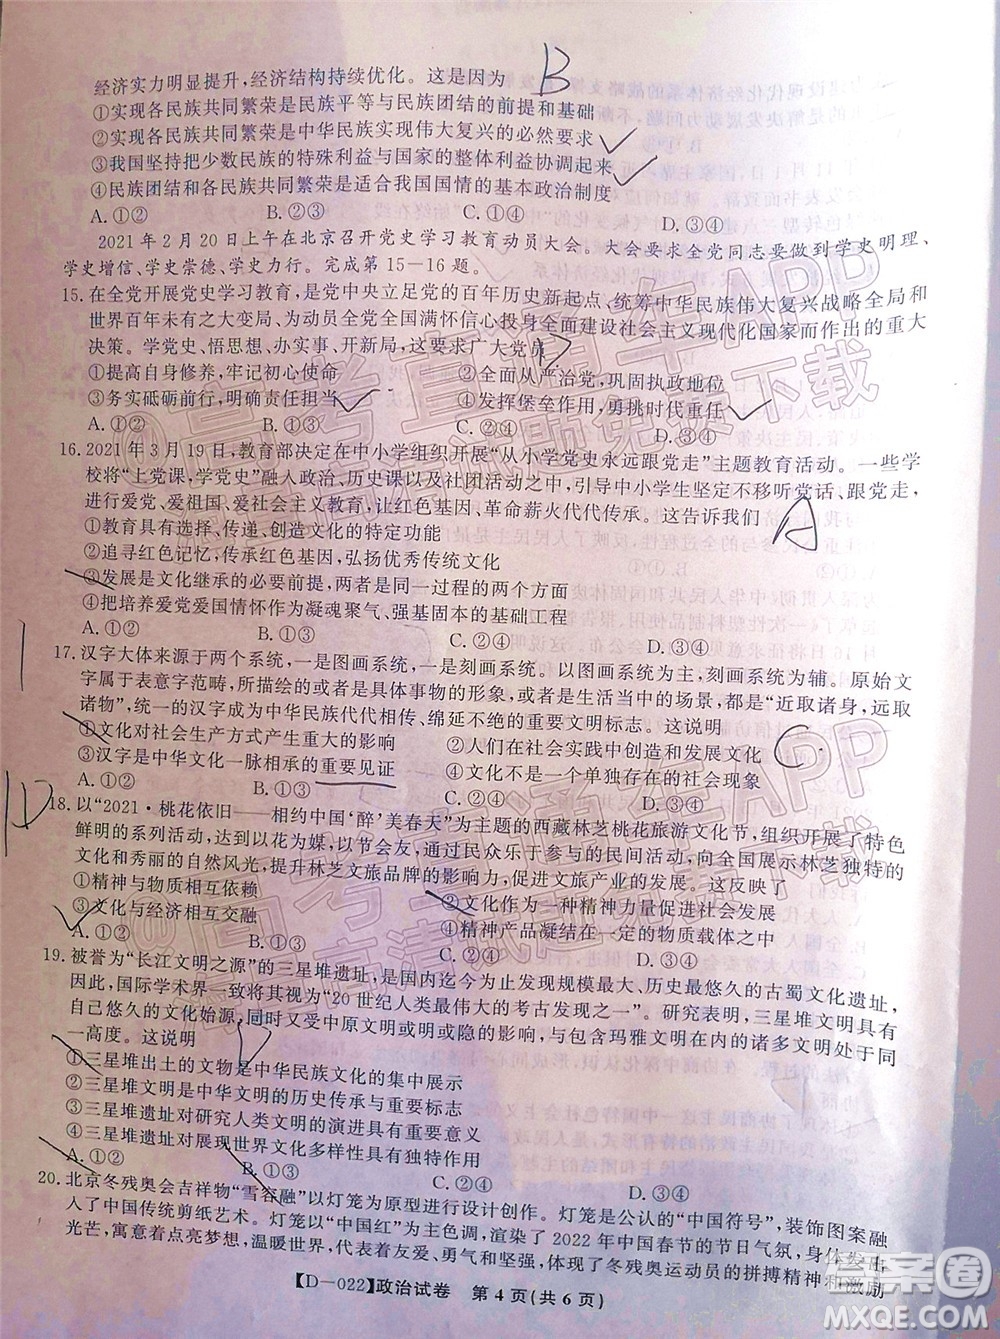 经济实力明显提升,经济结构持续优化。这是因为 B
①实现各民族共同繁荣是民族平等与民族团结的前提和基础
②实现各民族共同繁荣是中华民族实现伟大复兴的必然要求
③我国坚持把少数民族的特殊利益与国家的整体利益协调起来
④民族团结和各民族共同繁荣是适合我国国情的基本政治制度
A.①② B.②③ C.①④ D.③④
2021年2月20日上午在北京召开党史学习教育动员大会。大会要求全党同志要做到学史明理、
学史增信、学史崇德、学史力行。完成第15—16题。
15.在全党开展党史学习教育,是党中央立足党的百年历史新起点、统筹中华民族伟大复兴战略全局和
世界百年未有之大变局、为动员全党全国满怀信心投身全面建设社会主义现代化国家而作出的重大
决策。学党史、悟思想、办实事、开新局,这要求广大党员 D
①提高自身修养,牢记初心使命 ②全面从严治党,巩固执政地位
③务实砥砺前行,明确责任担当 ④发挥堡垒作用,勇挑时代重任
A.①② B.①③ C.②④ D.③④
16.2021年3月19日,教育部决定在中小学组织开展“从小学党史永远跟党走”主题教育活动。一些学
校将“上党课,学党史”融入政治、历史课以及社团活动之中,引导中小学生坚定不移听党话、跟党走,
进行爱党、爱祖国、爱社会主义教育,让红色基因、革命薪火代代传承。这告诉我们 A
①教育具有选择、传递、创造文化的特定功能
②追寻红色记忆,传承红色基因,弘扬优秀传统文化
③发展是文化继承的必要前提,两者是同一过程的两个方面
④把培养爱党爱国情怀作为凝魂聚气、强基固本的基础工程
A.①② B.①③ C.②④ D.③④
17.汉字大体来源于两个系统,一是图画系统,一是刻画系统。以图画系统为主,刻画系统为辅。原始文
字属于表意字范畴,所描绘和表达的具体事物的形象,或者是生活当中的场景,都是“近取诸身,远取
诸物”,统一的汉字成为中华民族代代相传、绵延不绝的重要文明标志。这说明
①文化对社会生产方式产生重大的影响 ②人们在社会实践中创造和发展文化 C
③汉字是中华文化一脉相承的重要见证 ④文化是一种不单独存在的社会现象
A.①② B.①③ C.②③ D.③④
18.以“2021·桃花依旧——相约中国‘醉’美春天”为主题的西藏林芝桃花旅游文化节,组织开展了特色
鲜明的系列活动,达到以花为媒,以节会友,通过民众乐于参与的民间活动,向全国展示林芝独特的
文化和秀丽的自然风光,提升林芝文旅品牌的影响力,促进文旅产业的发展。这反映了
①精神与物质相互依赖 ②文化作为一种精神力量促进社会发展
③文化与经济相互交融 ④精神产品凝结在一定的物质载体之中
A.①② B.①③ C.②④ D.③④
19.被誉为“长江文明之源”的三星堆遗址,是国内迄今为止发现规模最大、历史最悠久的古蜀文化遗址,
因此,国际学术界一致将其视为“20世纪人类最伟大的考古发现之一”。研究表明,三星堆文明有自
己悠久的文化始源,同时又受中原文明或明或隐的影响,与包括玛雅文明在内的诸多文明处于同
一高度。这说明 D
①三星堆出土的文物是中华民族文化的集中展示
②三星堆文明是中华文明的重要组成部分
③三星堆遗址对研究人类文明具有重要意义
④三星堆遗址对展现世界文化多样性具有独特作用
A.①② B.①③ C.②④ D.③④
20.北京冬残奥会吉祥物“雪容融”以灯笼为原型进行设计创作。灯笼是公认的“中国符号”,装饰图案融
入了中国传统剪纸艺术。灯笼以“中国红”为主色调,渲染了2022年中国春节的节日气氛,身体发出
光芒,寓意着点亮梦想,温暖世界,代表着友爱、勇气和坚强,体现了冬残奥运动员的拼搏精神和激励
【D—022】政治试卷 第4页(共6页)
答案圈